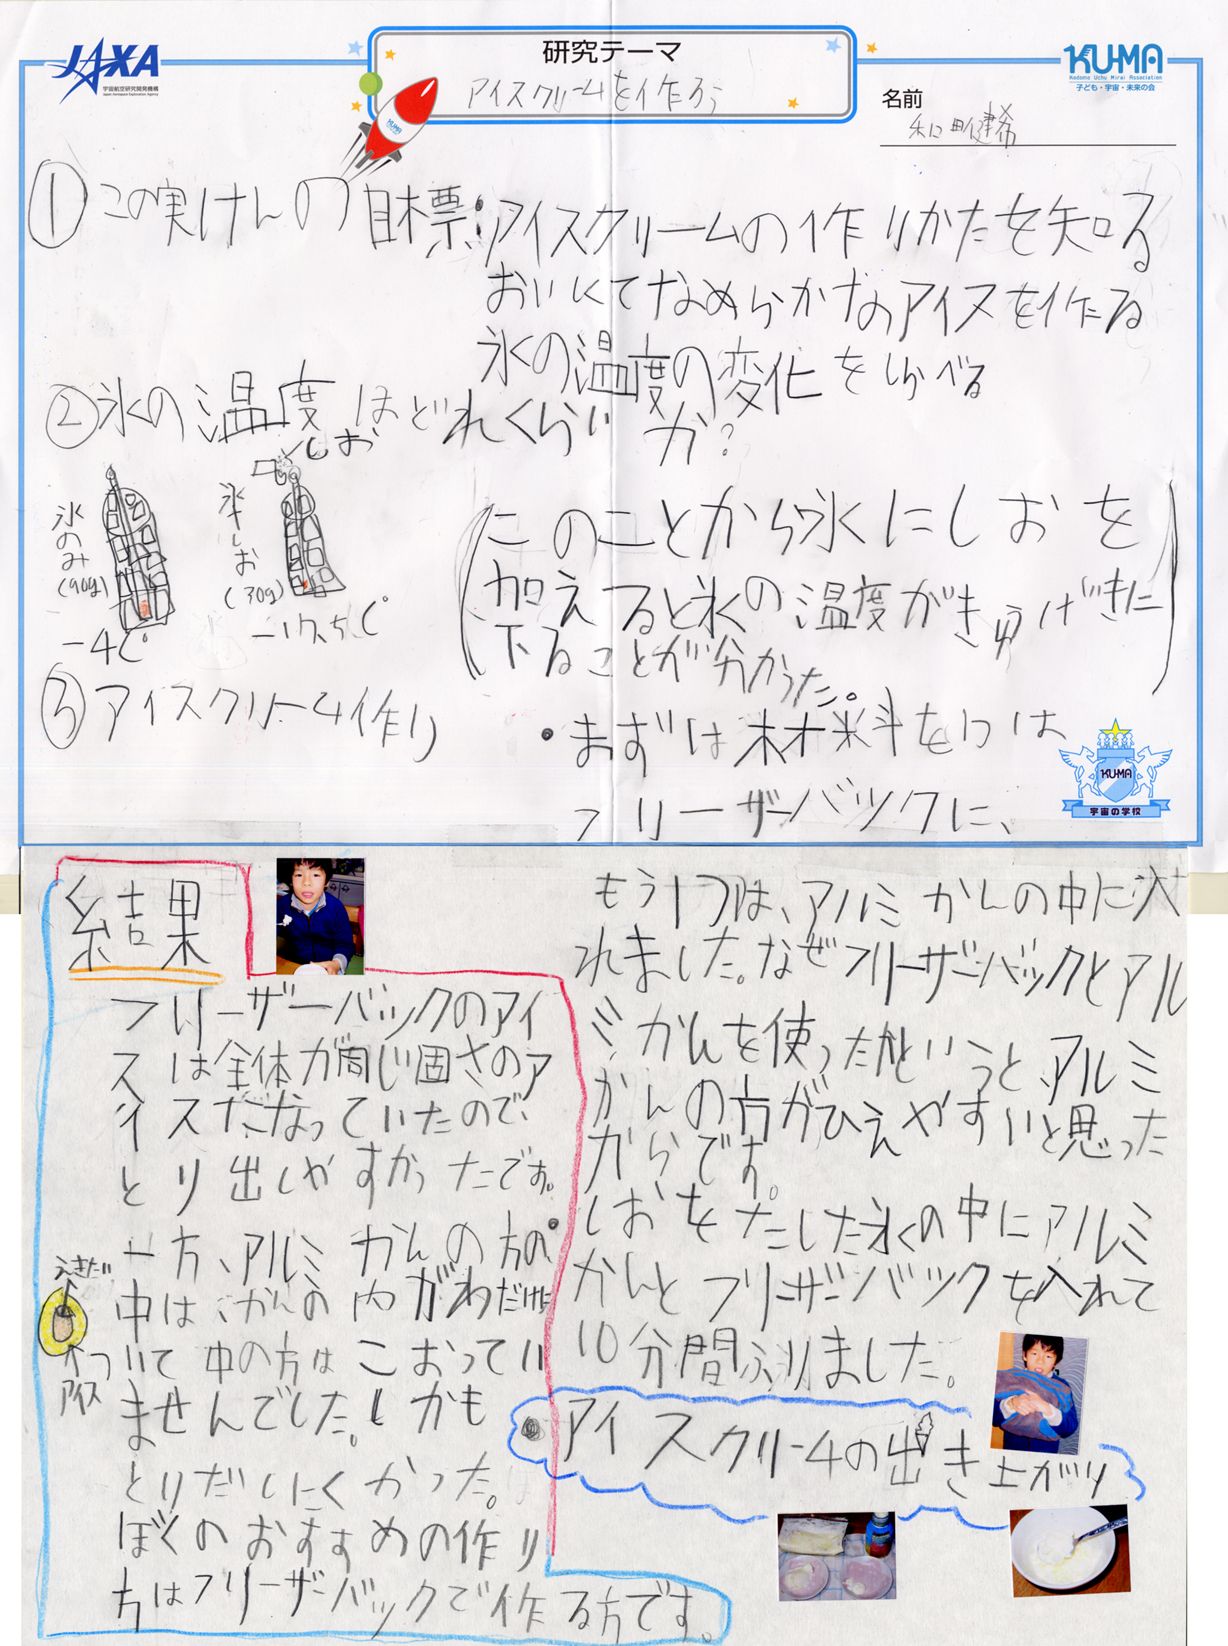 JAXA
宇宙航空研究開発機構
Japan Aerospace Exploration Agency
研究テーマ
アイスクリームを作ろう
KU-MA
Kodomo Uchu Mirai Association
子ども・宇宙・未来の会
名前
和田健希
KU-MA
①この実けんの目標:アイスクリームの作りかたを知る
おいしくてなめらかなのアイスを作る
氷の温度の変化をしらべる
②氷の温度はどれくらいか?
しお
氷のみ(90g)
氷+しお(30g)
-4C°
-17.5C°
(このことから氷にしおを
加えると氷の温度がきゅうげきに
下ることが分かった。)
③アイスクリーム作り
・まずは材料を1つは
フリーザーバックに、
KU-MA
宇宙の学校
もう1つは、アルミかんの中に入
れました。なぜフリーザーバックとアル
ミかんを使ったかというと、アルミ
かんの方がひえやすいと思った
からです。
・しおをたした氷の中にアルミ
かんとフリーザーバックを入れて
10分間ふりました。
・アイスクリームの出き上がり
結果
フリーザーバックのアイ
スは全体が同じ固さのア
イスだなっていたので、
とり出しやすかったです。
一方、アルミかんの方の、
中は、かんの内がわだけに
ついて中の方はこおってい
ませんでした。しかも
とりだしにくかった。
ぼくのおすすめの作り
方はフリーザーバックで作る方です。
えきたい
アイス